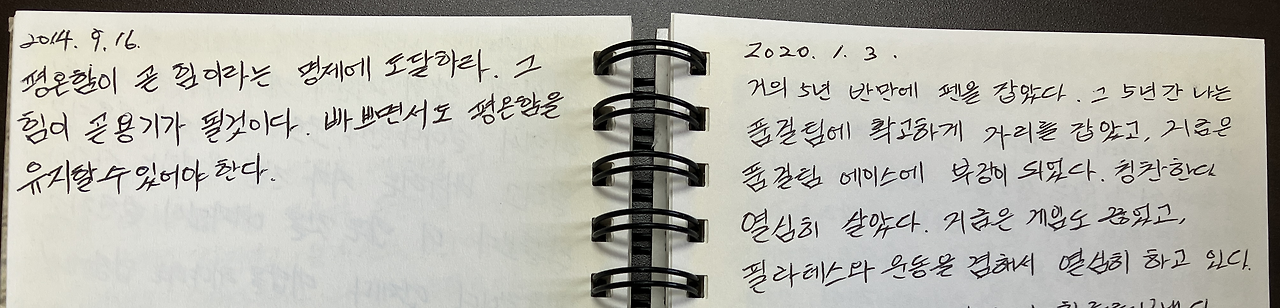 2014. 9. 16.
평온함이 곧 힘이라는 명제에 도달하라. 그
힘이 곧 용기가 될것이다. 바쁘면서도 평온함을
유지할 수 있어야 한다.
2020. 1. 3.
거의 5년 반만에 펜을 잡았다. 그 5년간 나는
품질팀에 확고하게 자리를 잡았고, 지금은
품질팀 에이스에 부장이 되었다. 칭찬한다
열심히 살았다. 지금은 게임도 끊었고,
필라테스와 운동을 겸해서 열심히 하고 있다.